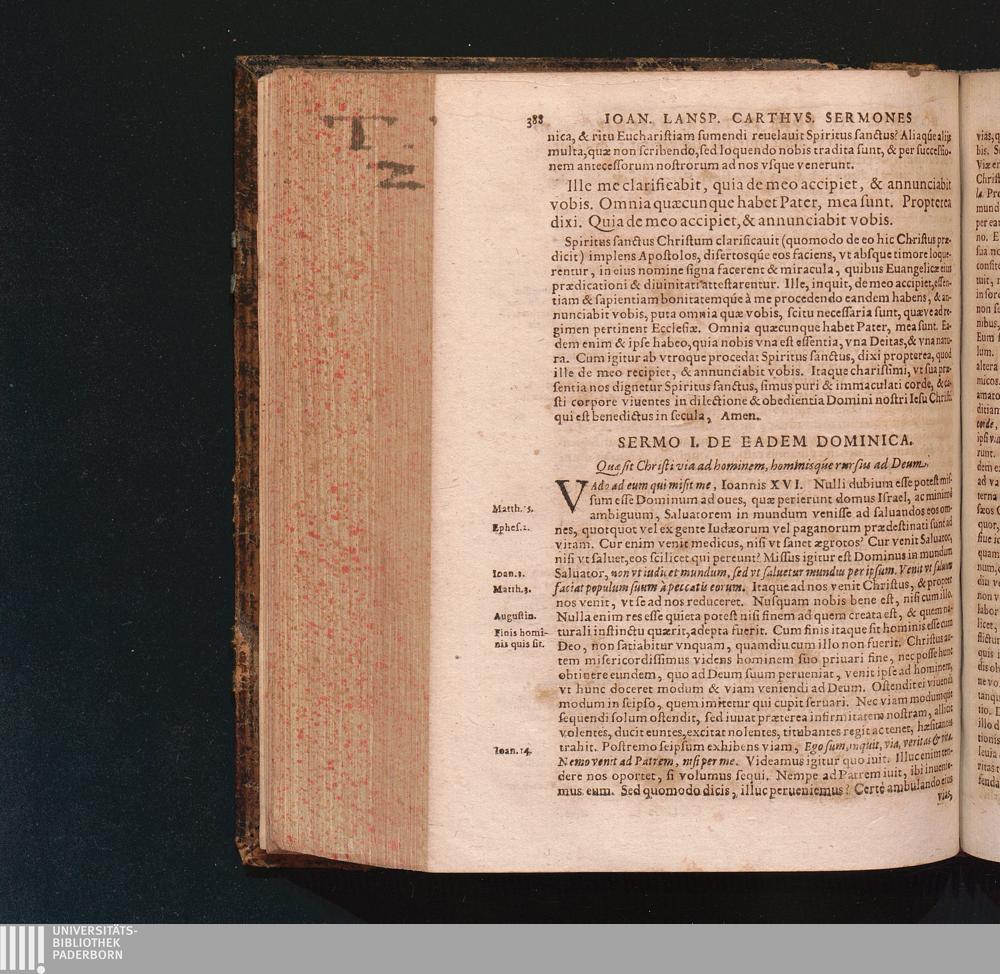 388 IOAN. LANSP. CARTHVS. SERMONES
nica, & ritu Euchariſtiam ſumendi reuelauit Spiritus ſanctus? Aliaq́ue alijs
multa, quæ non ſcribendo, ſed loquendo nobis tradita ſunt, & per ſucceſſio-
nem anteceſſorum noſtrorum ad nos vſque venerunt.
Ille me clarificabit, quia de meo accipiet, & annunciabit
vobis. Omnia quæcunque habet Pater, mea ſunt. Propterea
dixi. Quia de meo accipiet, & annunciabit vobis.
Spiritus ſanctus Chriſtum clarificauit (quomodo de eo hic Chriſtus præ-
dicit) implens Apoſtolos, diſertosq́ue eos faciens, vt abſque timore loque-
rentur, in eius nomine ſigna facerent & miracula, quibus Euangelicæ eius
prædicationi & diuinitati atteſtarentur. Ille, inquit, de meo accipiet, eſſen-
tiam & ſapientiam bonitatemq́ue à me procedendo eandem habens, & an-
nunciabit vobis, puta omnia quæ vobis, ſcitu neceſſaria ſunt, quæve ad re-
gimen pertinent Eccleſiæ. Omnia quæcunque habet Pater, mea ſunt. Ea-
dem enim & ipſe habeo, quia nobis vna eſt eſſentia, vna Deitas, & vna natu-
ra. Cum igitur ab vtroque procedat Spiritus ſanctus, dixi propterea, quod
ille de meo recipiet, & annunciabit vobis. Itaque chariſſimi, vt ſua præ-
ſentia nos dignetur Spiritus ſanctus, ſimus puri & immaculati corde, & ca-
ſti corpore viuentes in dilectione & obedientia Domini noſtri Ieſu Chriſti
qui eſt benedictus in ſecula, Amen.
SERMO I. DE EADEM DOMINICA.
Quæ ſit Chriſti via ad hominem, hominisq́ue rurſus ad Deum.
VAdo ad eum qui miſit me, Ioannis XVI. Nulli dubium eſſe poteſt miſ-
ſum eſſe Dominum ad oues, quæ perierunt domus Iſrael, ac minimè
Matth. 15. ambiguum, Saluatorem in mundum veniſſe ad ſaluandos eos om-
Epheſ. 2. nes, quotquot vel ex gente Iudæorum vel paganorum prædeſtinati ſunt ad
vitam. Cur enim venit medicus, niſi vt ſanet ægrotos? Cur venit Saluator,
niſi vt ſaluet, eos ſcilicet qui pereunt? Miſſus igitur eſt Dominus in mundum
Ioan. 3. Saluator, non vt iudicet mundum, ſed vt ſaluetur mundus per ipſum. Venit vt ſaluum
Matth. 3. faciat populum ſuum à peccatis eorum. Itaque ad nos venit Chriſtus, & propter
nos venit, vt ſe ad nos reduceret. Nuſquam nobis bene eſt, niſi cum illo.
Auguſtin. Nulla enim res eſſe quieta poteſt niſi finem ad quem creata eſt, & quem na-
Finis homi- turali inſtinctu quærit, adepta fuerit. Cum finis itaque ſit hominis eſſe cum
nis quis ſit. Deo, non ſatiabitur vnquam, quamdiu cum illo non fuerit. Chriſtus au-
tem miſericordiſſimus videns hominem ſuo priuari fine, nec poſſe hunc
obtinere eundem, quo ad Deum ſuum perueniat, venit ipſe ad hominem,
vt hunc doceret modum & viam veniendi ad Deum. Oſtendit ei viuendi
modum in ſeipſo, quem imitetur qui cupit ſeruari. Nec viam modumque
ſequendi ſolum oſtendit, ſed iuuat præterea infirmitatem noſtram, allicit
volentes, ducit euntes, excitat nolentes, titubantes regit ac tenet, hæſitantes
Ioan. 14. trahit. Poſtremo ſeipſum exhibens viam, Ego ſum, inquit, via, veritas & vita.
Nemo venit ad Patrem, niſi per me. Videamus igitur quo iuit. Illuc enim ten-
dere nos oportet, ſi volumus ſequi. Nempe ad Patrem iuit, ibi inuenie-
mus eum. Sed quomodo dicis, illuc perueniemus? Certè ambulando eius
vias,
UNIVERSITÄTS-
BIBLIOTHEK
PADERBORN